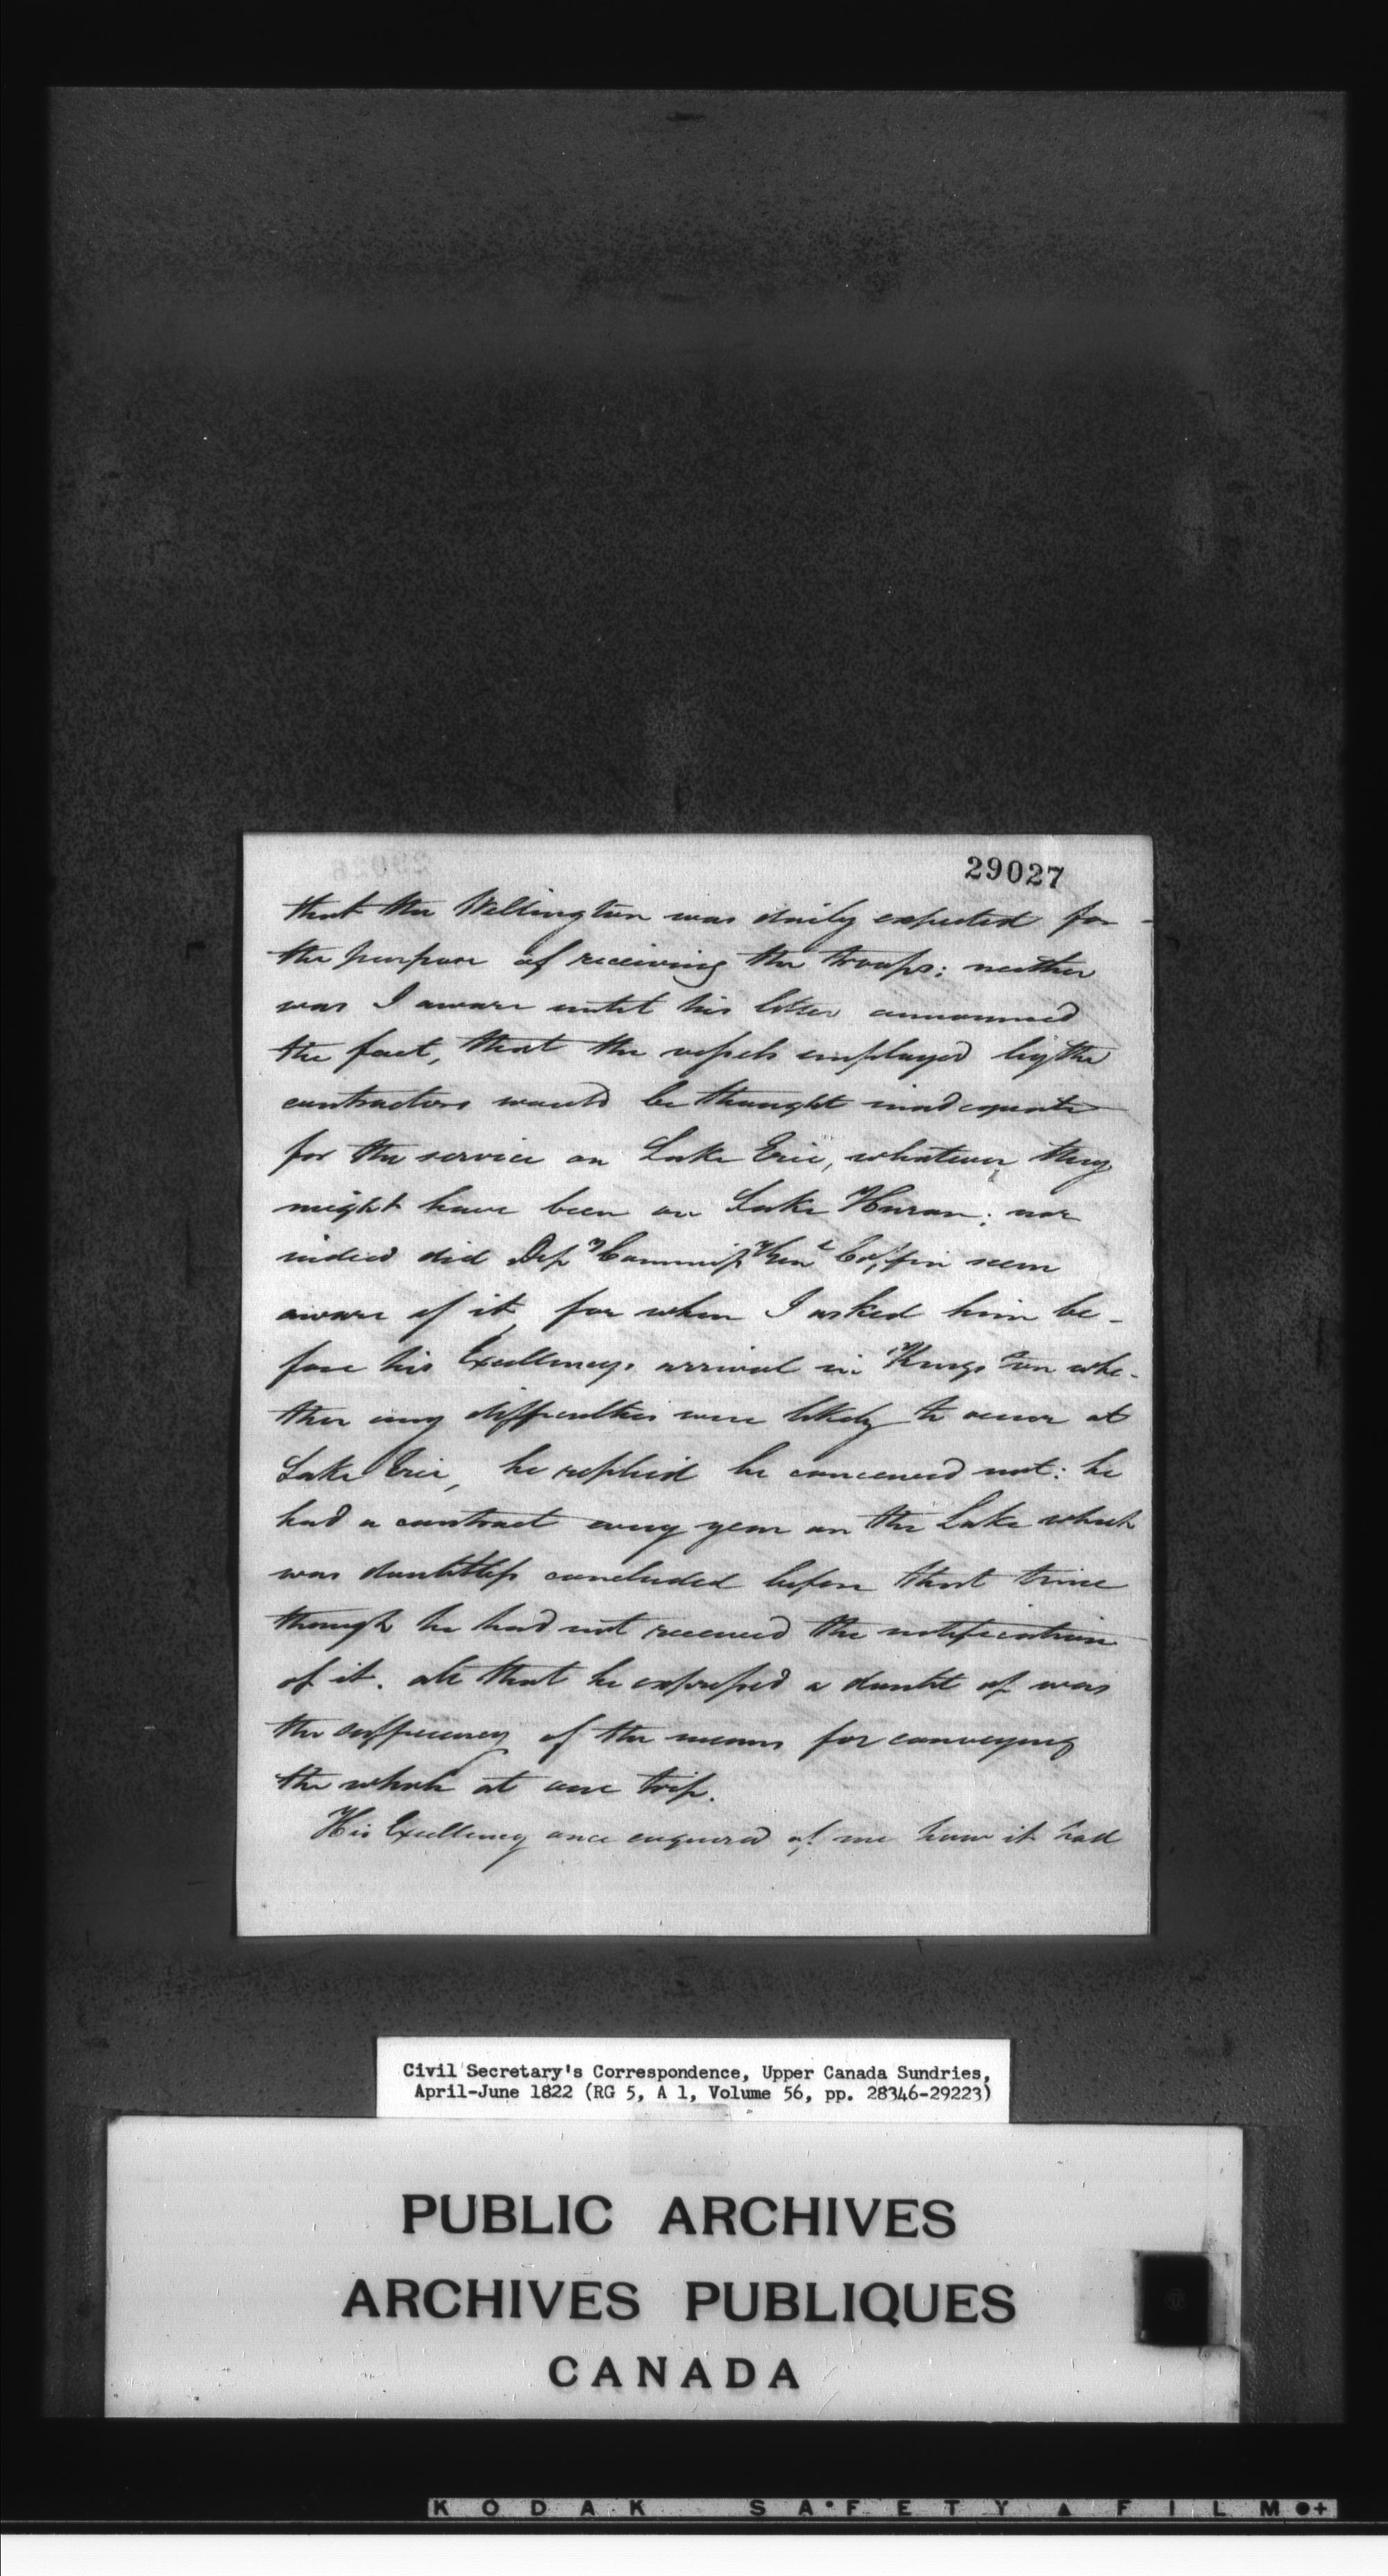 29027
that the Wellington was daily expected for
the purpose of receiving the troops: neither
was I aware until his letter announced
the fact, that the vessels employed by the
contractors would be thought inadequate
for the service on Lake Erie, whatever they
might have been on Lake Huron; nor
indeed did Depy Commissy Genl Coffin seem
aware of it, for when I asked him be-
fore his Excellencys arrival in Kingston whe-
ther any difficulties were likely to occur at
Lake Erie, he replied he conceived not: he
had a contract every year on the Lake which
was doubtless concluded before that time
though he had not received the notification
of it. all that he expressed a doubt of was
the sufficiency of the means for conveying
the whole at one trip.
His Excellency once enquired of me how it had
Civil Secretary's Correspondence, Upper Canada Sundries,
April-June 1822 (RG 5, A 1, Volume 56, pp. 28346-29223)
PUBLIC ARCHIVES
ARCHIVES PUBLIQUES
CANADA
KODAK SAFETY FILM